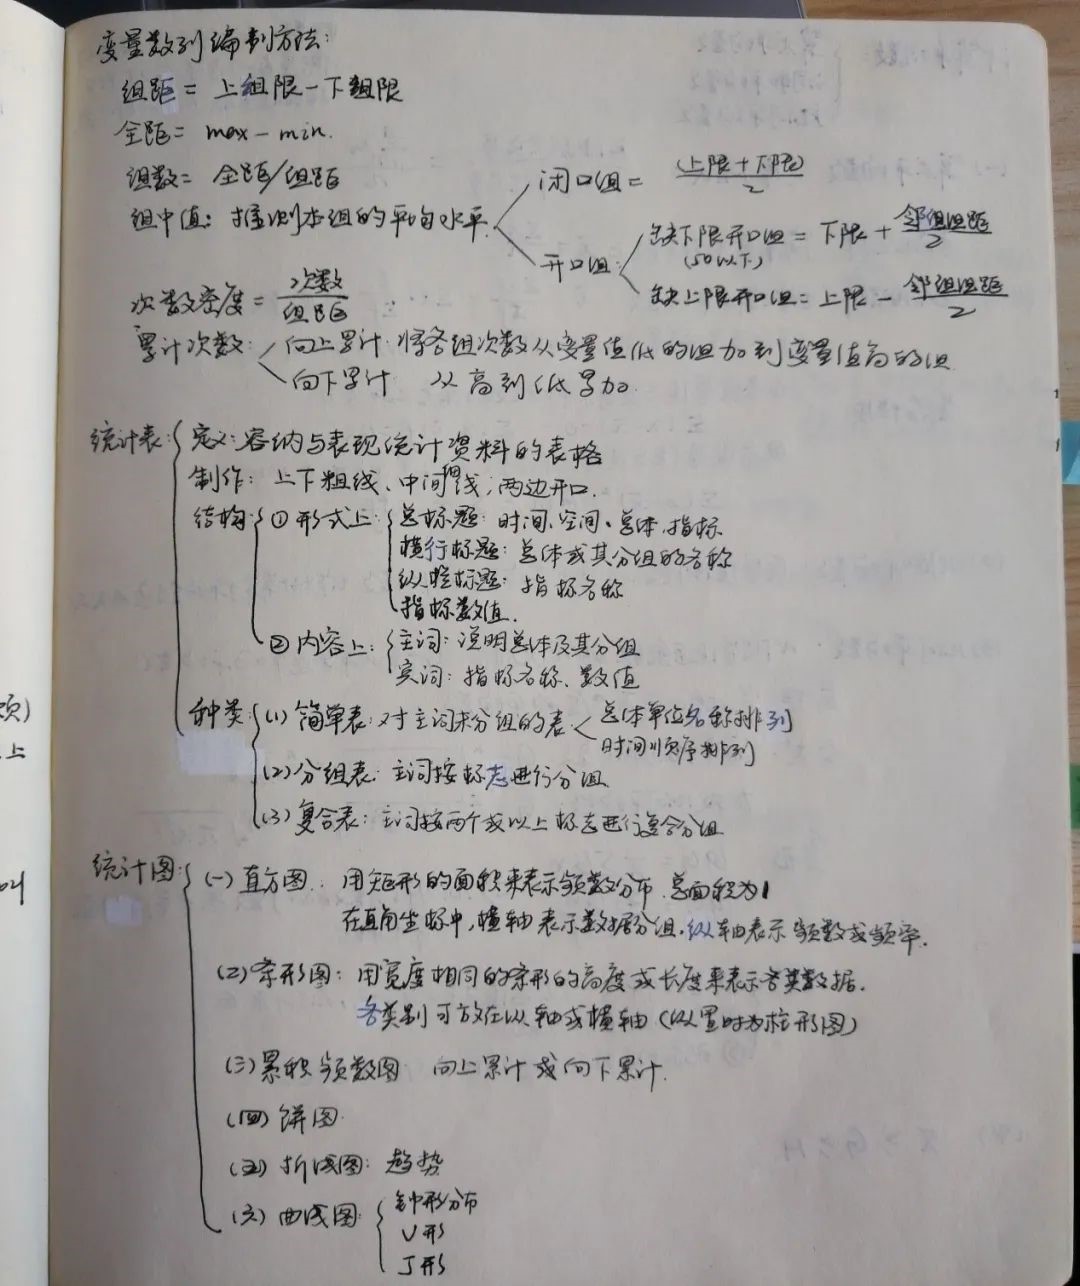 变量数列编制方法:
组距= 上组限-下组限
全距= max-min.
组数= 全距/组距
组中值: 推测本组的平均水平. 闭口组= (上限+下限)/2
开口组: 缺下限开口组=下限+邻组组距/2
(50以下)
缺上限开口组=上限-邻组组距/2
次数密度=次数/组距
累计次数: 向上累计 将各组次数从变量值低的组加到变量值高的组
向下累计 从高到低累加.
统计表: 定义: 容纳与表现统计资料的表格
制作: 上下粗线、中间细线; 两边开口.
结构: ① 形式上: 总标题: 时间、空间、总体、指标
横行标题: 总体或其分组的名称
纵栏标题: 指标名称
指标数值.
② 内容上: 主词: 说明总体及其分组
宾词: 指标名称、数值
种类: (1) 简单表: 对主词未分组的表 总体单位名称排列
时间顺序排列
(2) 分组表: 主词按标志进行分组.
(3) 复合表: 主词按两个或以上标志进行复合分组
统计图: (一) 直方图: 用矩形的面积来表示频数分布. 总面积为1
在直角坐标中, 横轴表示数据分组. 纵轴表示频数或频率.
(二) 条形图: 用宽度相同的条形的高度或长度来表示各类数据.
各类别可放在纵轴或横轴 (纵置时为柱形图)
(三) 累积频数图 向上累计或向下累计.
(四) 饼图
(五) 折线图: 趋势
(六) 曲线图: 钟形分布
U形
J形